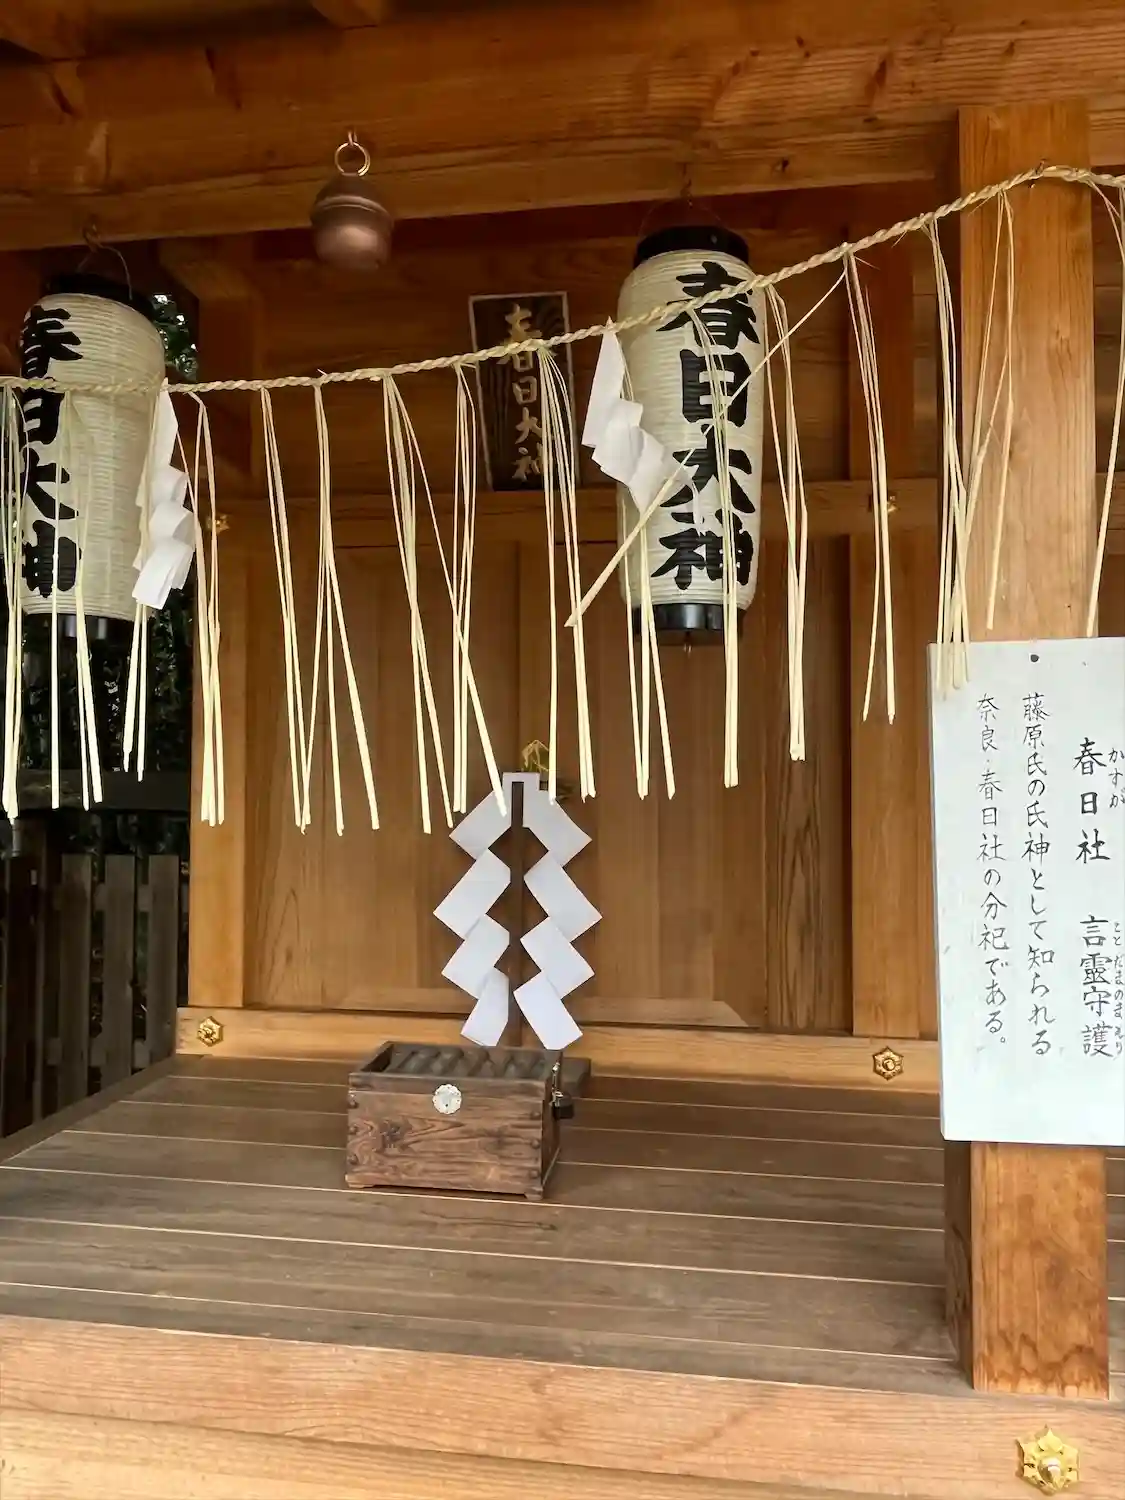 春日大神
春日大神
春日大神
かすが ことだまのまもり
春日社 言霊守護
藤原氏の氏神として知られる
奈良・春日社の分祀である。